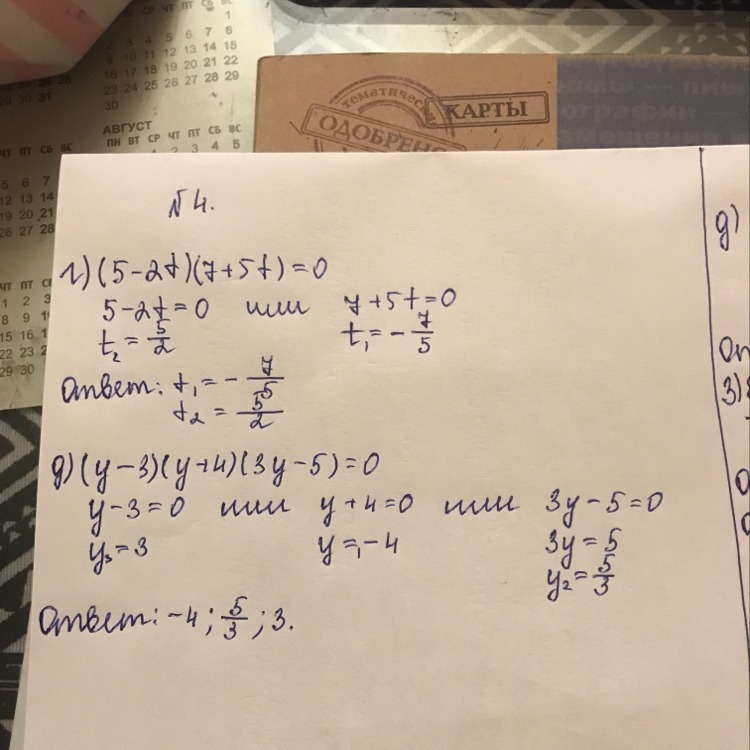 1
СР ЧТ ПТ СБ ВС
2 3 4 5 6 7 8
9 10 11 12 13 14 15
16 17 18 19 20 21 22
23 24 25 26 27 28 29
30
29 30 31
АВГУСТ
ПН ВТ СР ЧТ ПТ СБ ВС
1 2 3 4 5
ЧТ ПТ СБ ВС
5 6 7
12 13 14
19 20 21
26 27 28
ЧТ ПТ
1 2 3
8 9 10
15 16
22 23
29 30
тематическ
ОДОБРЕНО
КАРТЫ
№4.
г) (5-2t)(7+5t)=0
5-2t=0 или 7+5t=0
t₂ = 5/2 t₁ = - 7/5
Ответ: t₁ = - 7/5
t₂ = 5/2
д) (y-3)(y+4)(3y-5)=0
y-3=0 или y+4=0 или 3y-5=0
y₃=3 y₁=-4 3y=5
y₂=5/3
Ответ: -4; 5/3; 3.
д)
От
3)